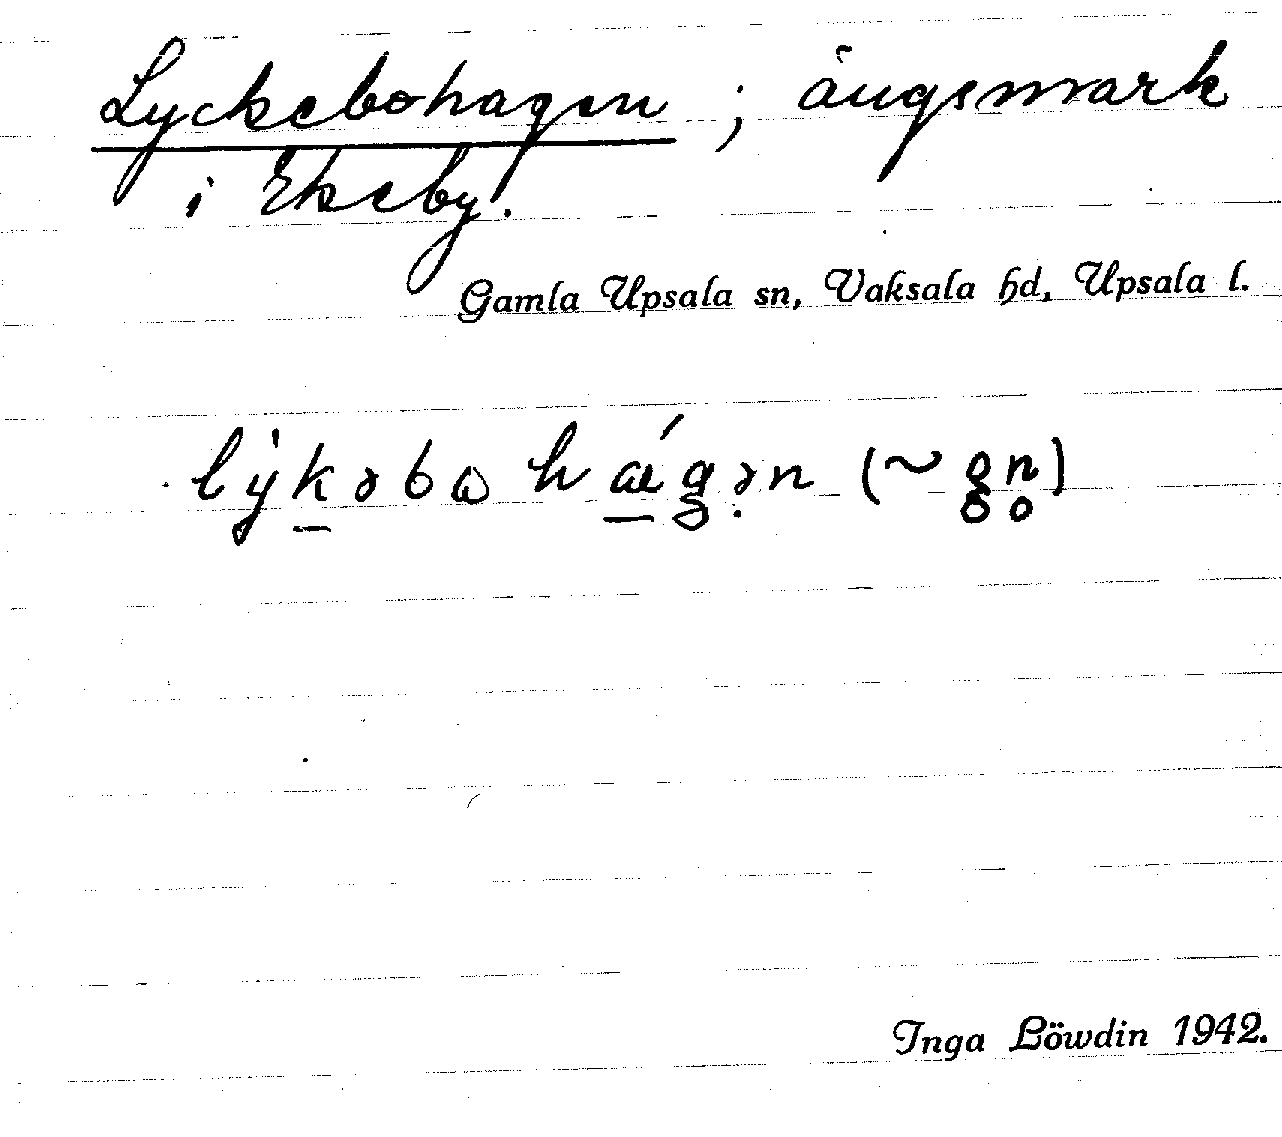 Lyckebohagen ; ängsmark
i Ekeby.
Gamla Upsala sn, Vaksala hd, Upsala l.
lỳkəbɷhǽgən (~ g̥n̥)
Inga Löwdin 1942.